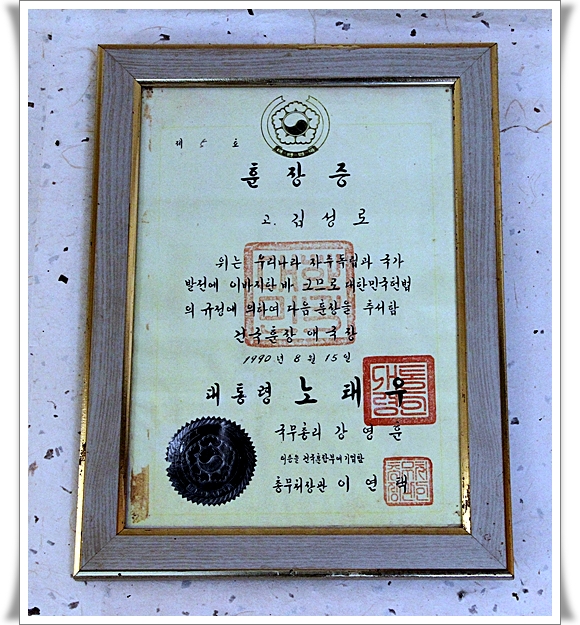 대한민국
제 5 호
훈장증
고 김성로
위는 우리나라 자주독립과 국가
발전에 이바지한 바 크므로 대한민국헌법
의 규정에 의하여 다음 훈장을 추서함
건국훈장 애국장
1990년 8월 15일
대통령 노태우
국무총리 강영훈
이 증을 건국훈장부에 기입함
총무처장관 이연택